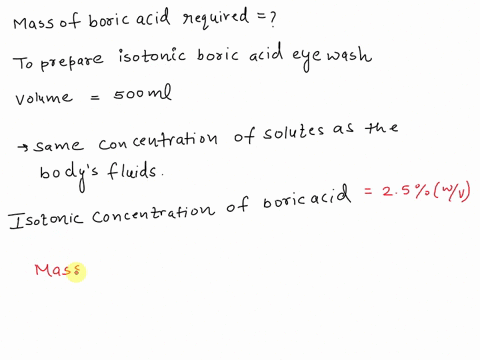 Mass of boric acid required = ?
To prepare isotonic boric acid eye wash
Volume = 500ml
→ same concentration of solutes as the
body's fluids.
Isotonic concentration of boric acid = 2.5% (w/v)
Mass